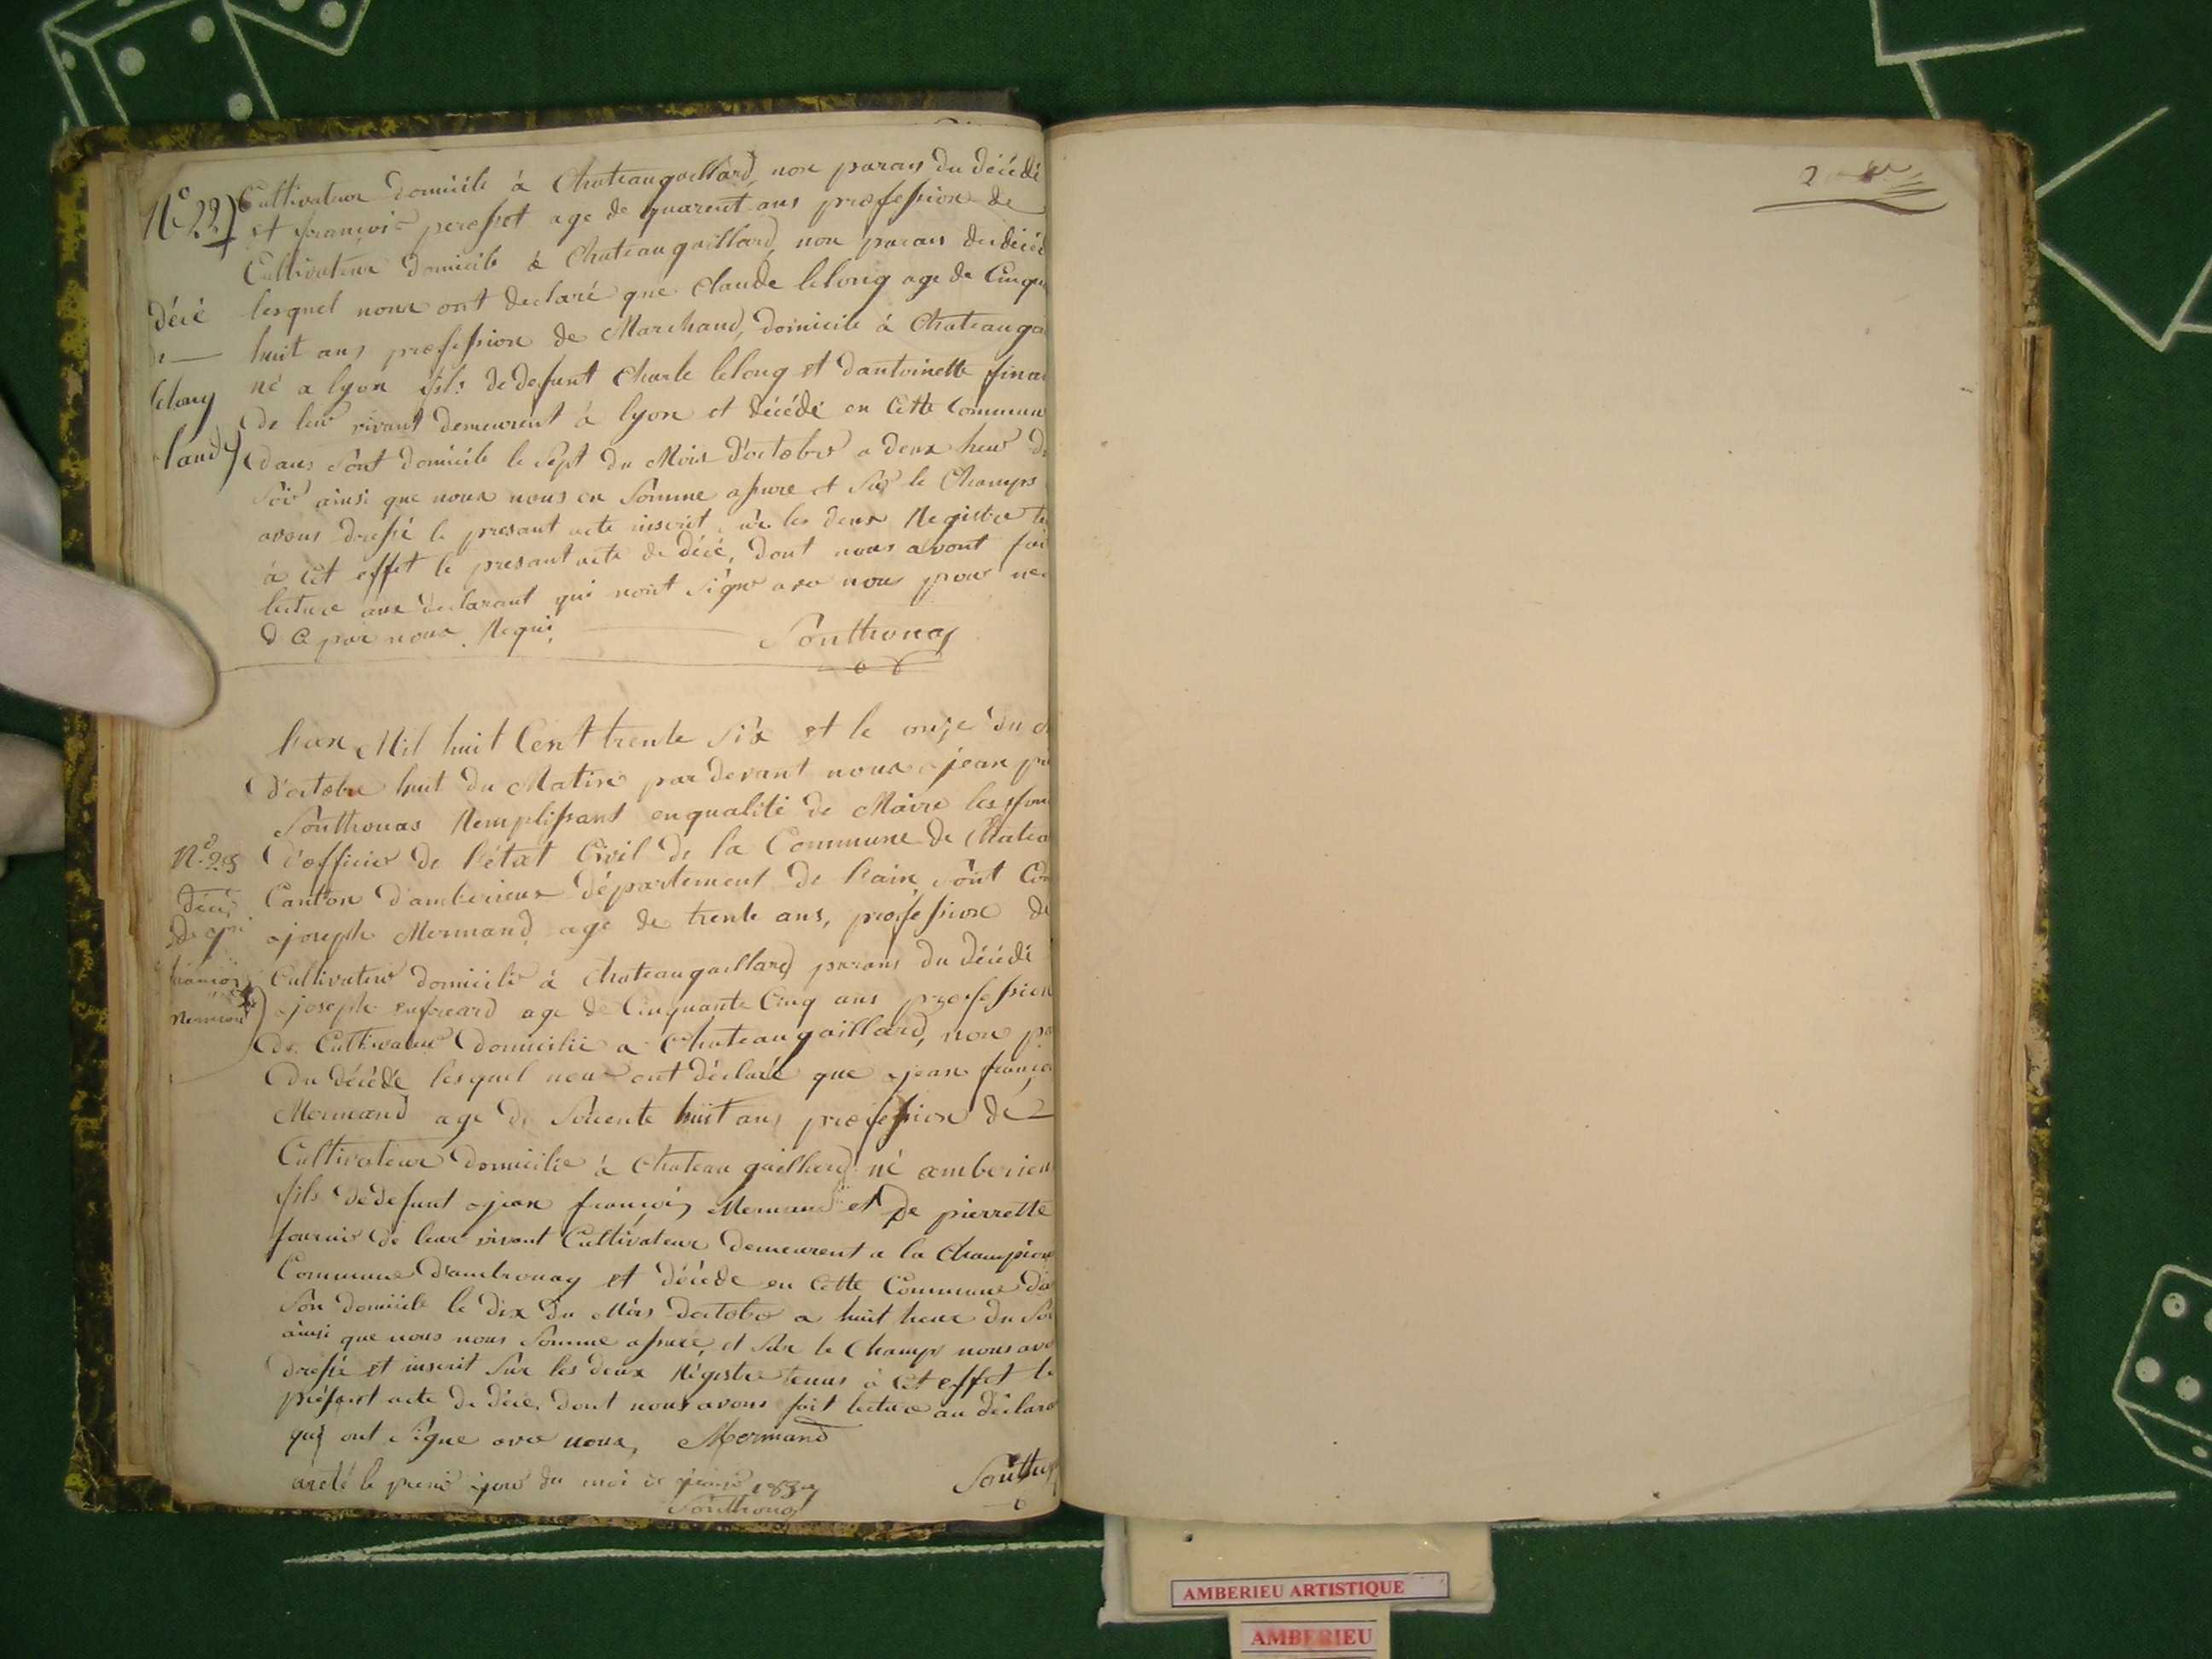 N° 22
Cultivateur domicile à Chateaugaillard, non parans du décédé
et françois perosset age de quarent ans profession de
Cultivateur domicile à Chateaugaillard, non parans du décéd
décé
de
lelong
laude
lesquel nous ont declaré que Claude lelong age de Cinqu
huit ans profession de Marchand, domicile à Chateauga
né a lyon fils de defunt Charle lelong et dantoinette finar
de leur vivant demeurent à lyon et décédé en Cette Commun
dans sont domicile le sept du Mois d'octobre a deux heur d
soir ainsi que nous nous en somme assuré et sur le Champs
avons dressé le presant acte inscrit sur les deux Registre te
à Cet effet le presant acte de décé, dont nous avont fai
lecture aux declarant qui n'ont signé avec nous pour
de par nous Requi,
Southonay
Lan Mil huit Cent trente six et le onze du
d'octobre huit du Matin par devant nous jean pi
Southonas Remplissant en qualité de Maire les fon
N° 23
décé
de
françois
Mermand
d'officier de l'état Civil de la Commune de Chatea
Canton d'amberieux département de Lain, sont Com
joseph Mermand age de trente ans, profession de
Cultivateur domicile à Chateaugaillard parans du décédé
joseph age de Cinquante Cinq ans profession
de Cultivateur domicilié a Chateaugaillard, non pa
du décédé lesquel nous ont déclaré que jean françoi
Mermand age de soicente huit ans profession de
Cultivateur domicilié à Chateau gaillard né amberieu
fils dedefunt jean françois Mermand et De pierrette
fournier de leur vivant Cultivateur demeurent a la Championi
Commune D'ambronay et décédé en Cette Commune da
son domicile le dix du Mois doctobre a huit heur du soi
ainsi que nous nous somme assuré, et sur le Champs nous avo
dressé et inscrit sur les deux Régistre tenus à Cet effet le
présant acte de décé, dont nous avons fait lecture au déclara
qui ont signé avec nous, Mermand
Southo
areté le premié jour du moi de 183
Southonas
AMBERIEU ARTISTIQUE
AMBERIEU